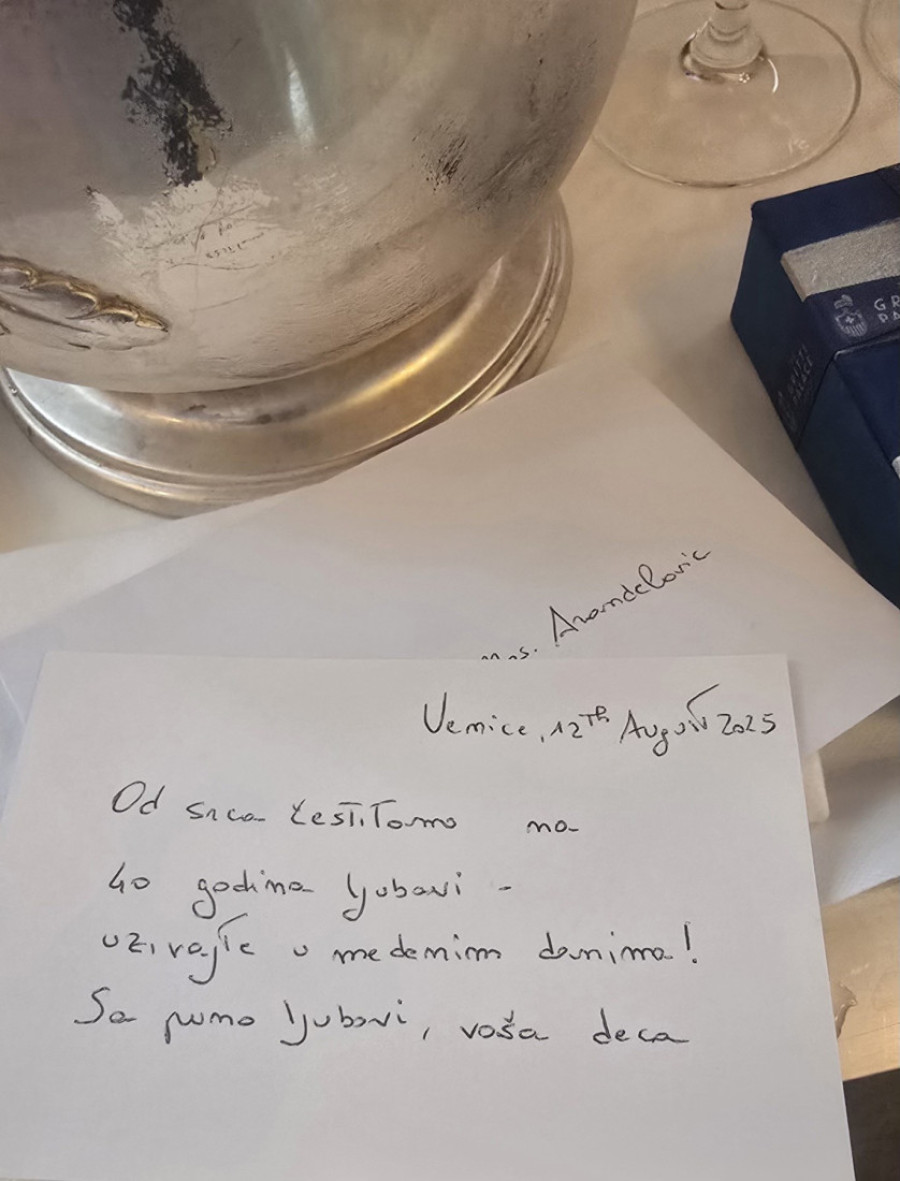 GR
PA
Mrs. Arandelovic
Venice, 12Th August 2025
Od srca čestitamo na
40 godina ljubavi -
uzivajte u medenim danima!
Sa puno ljubavi, vaša deca